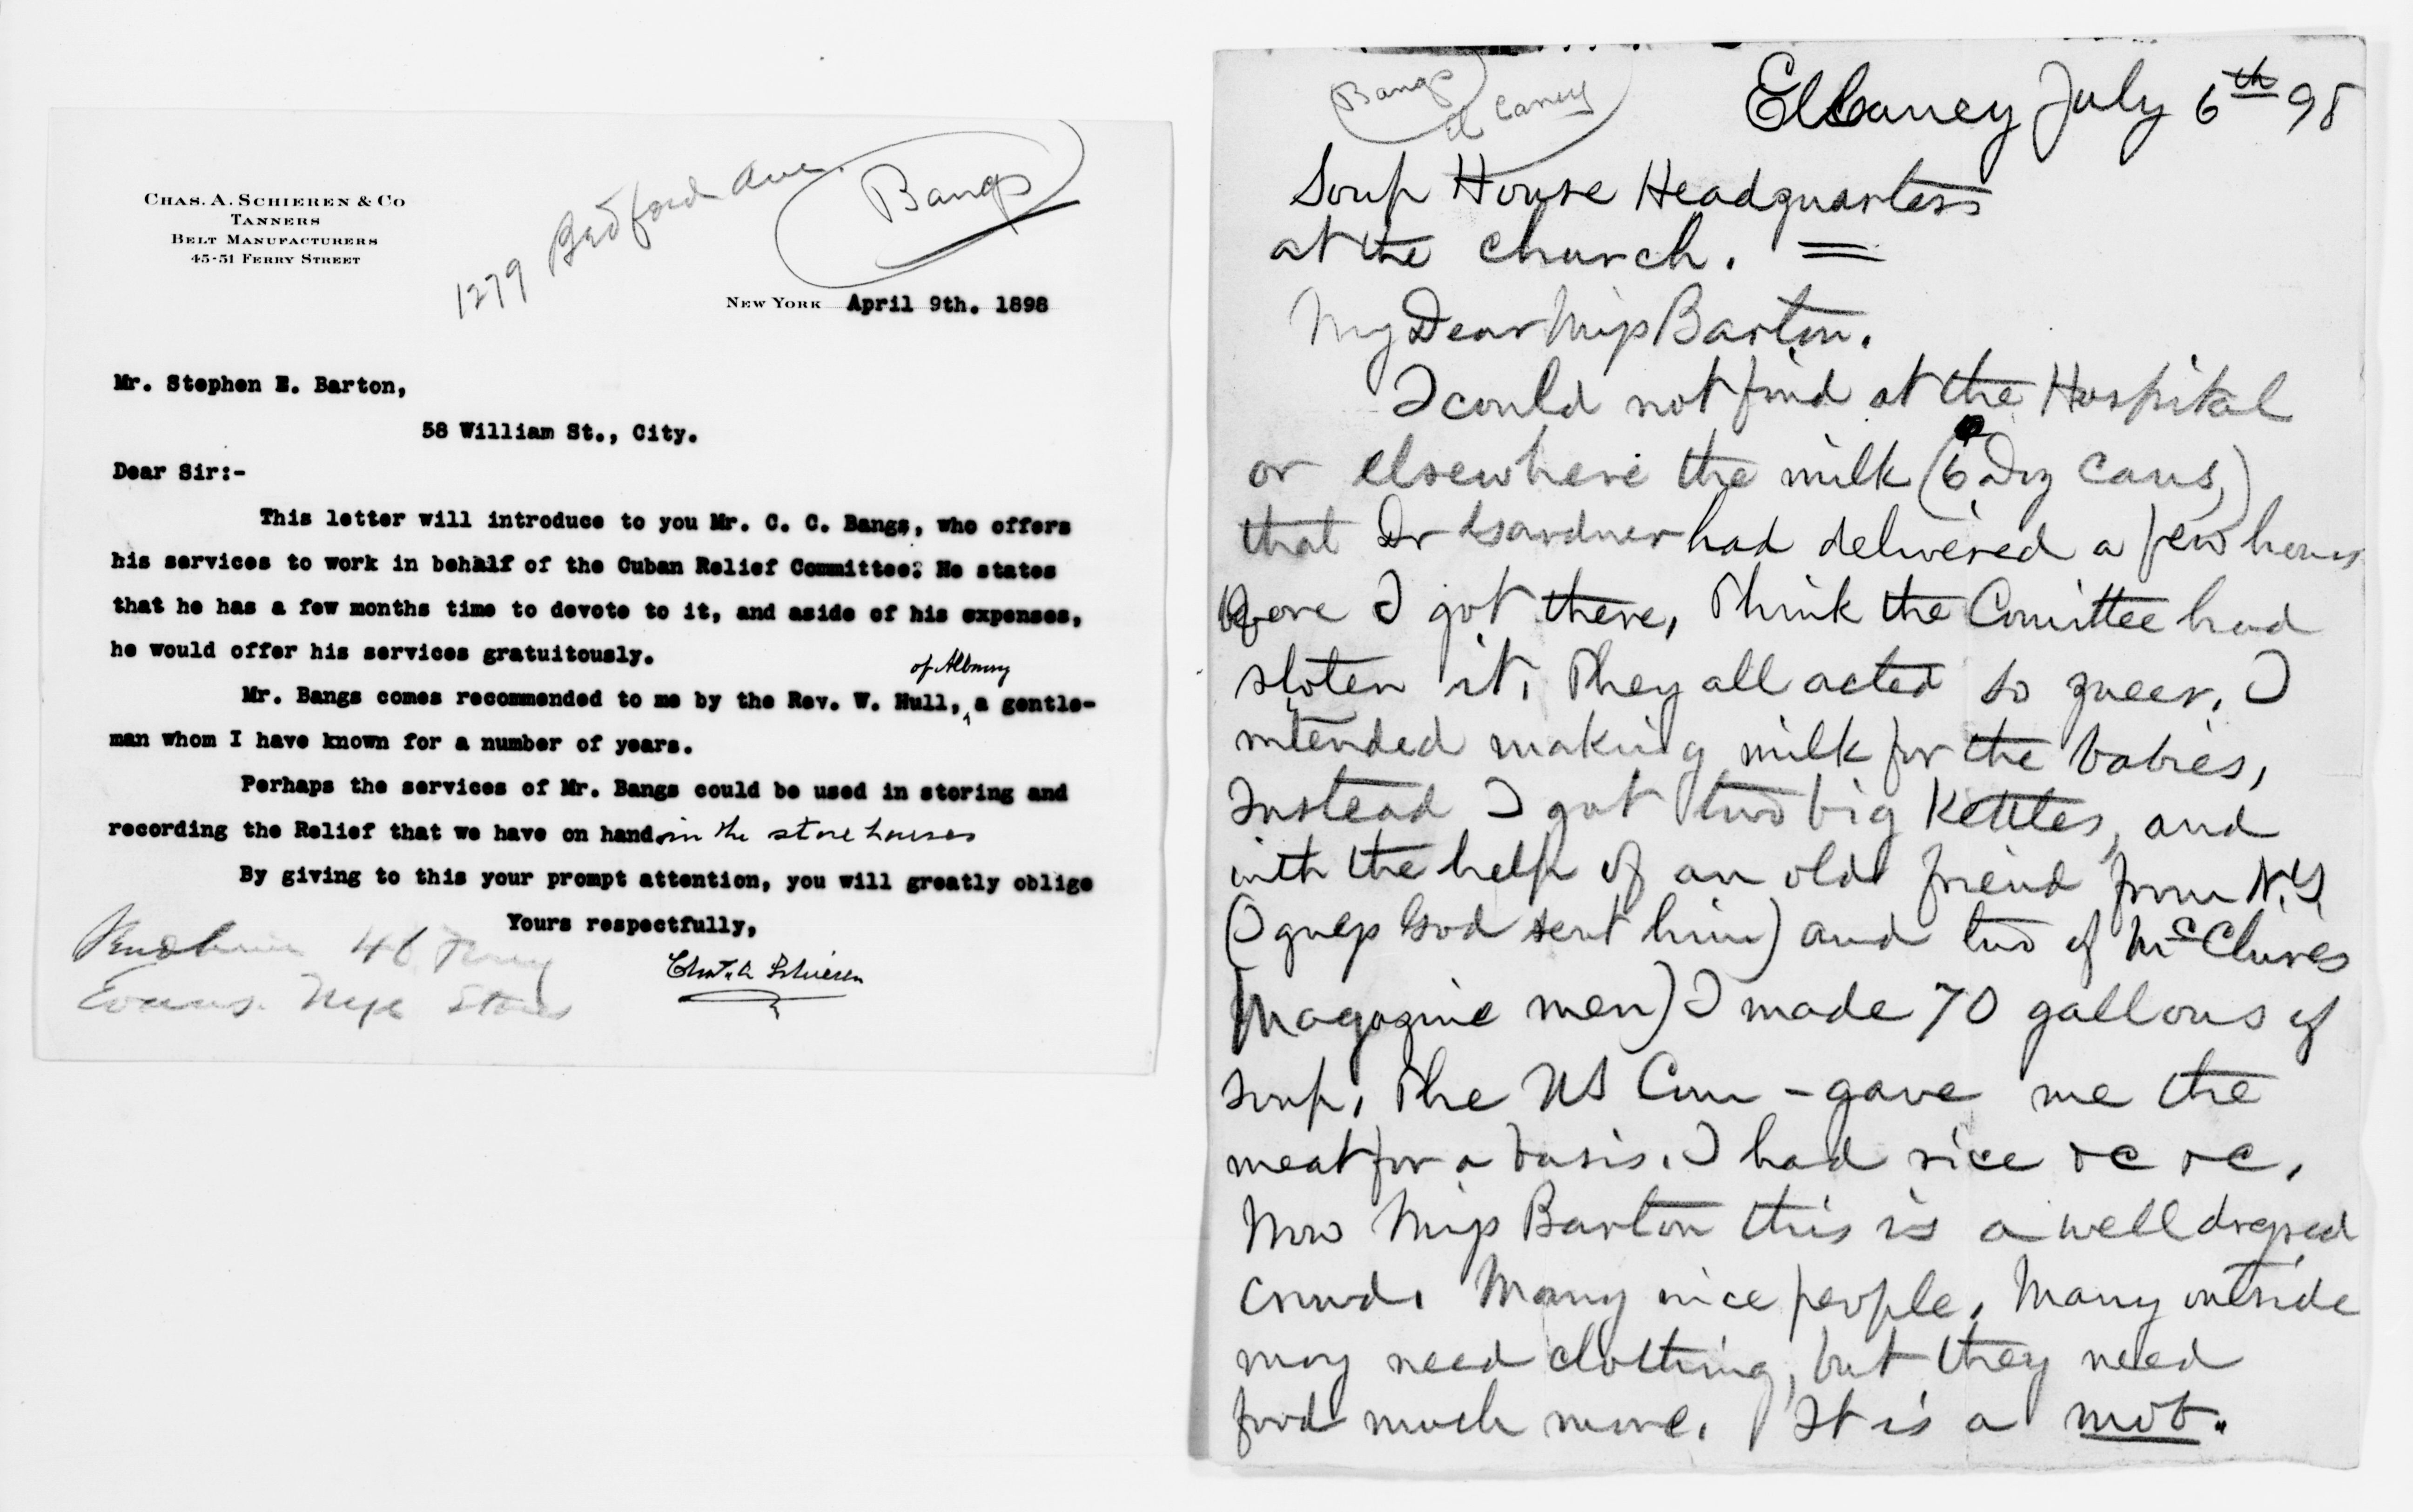 CHAS. A. SCHIEREN & CO
TANNERS
BELT MANUFACTURERS
45-51 FERRY STREET
1279 Bedford Ave.
Bangs
NEW YORK April 9th. 1898
Mr. Stephen E. Barton,
58 William St., City.
Dear Sir:-
This letter will introduce to you Mr. C. C. Bangs, who offers
his services to work in behalf of the Cuban Relief Committee. He states
that he has a few months time to devote to it, and aside of his expenses,
he would offer his services gratuitously.
of Albany
Mr. Bangs comes recommended to me by the Rev. W. Hull, ^ a gentle-
man whom I have known for a number of years.
Perhaps the services of Mr. Bangs could be used in storing and
recording the Relief that we have on hand in the store houses
By giving to this your prompt attention, you will greatly oblige
Yours respectfully,
Chas. A. Schieren
46 Ferry
Evans. Nye Stores
Bangs
El Caney
El Caney July 6th 98
Soup House Headquarters
at the church. =
My Dear Miss Barton.
I could not find at the Hospital
or elsewhere the milk (6 Doz cans,)
that Dr Gardner had delivered a few hours
before I got there, Think the Comittee had
stolen it. They all acted so queer. I
intended making milk for the babies,
Instead I got two big Kettles, and
with the help of an old friend from N.Y.
(I guess God sent him) and two of McClures
Magazine men) I made 70 gallons of
soup. The US Com - gave me the
meat for a basis. I had rice &c &c.
Now Miss Barton this is a well dressed
crowd. Many nice people. Many outside
may need clothing, but they need
food much more. It is a mob.